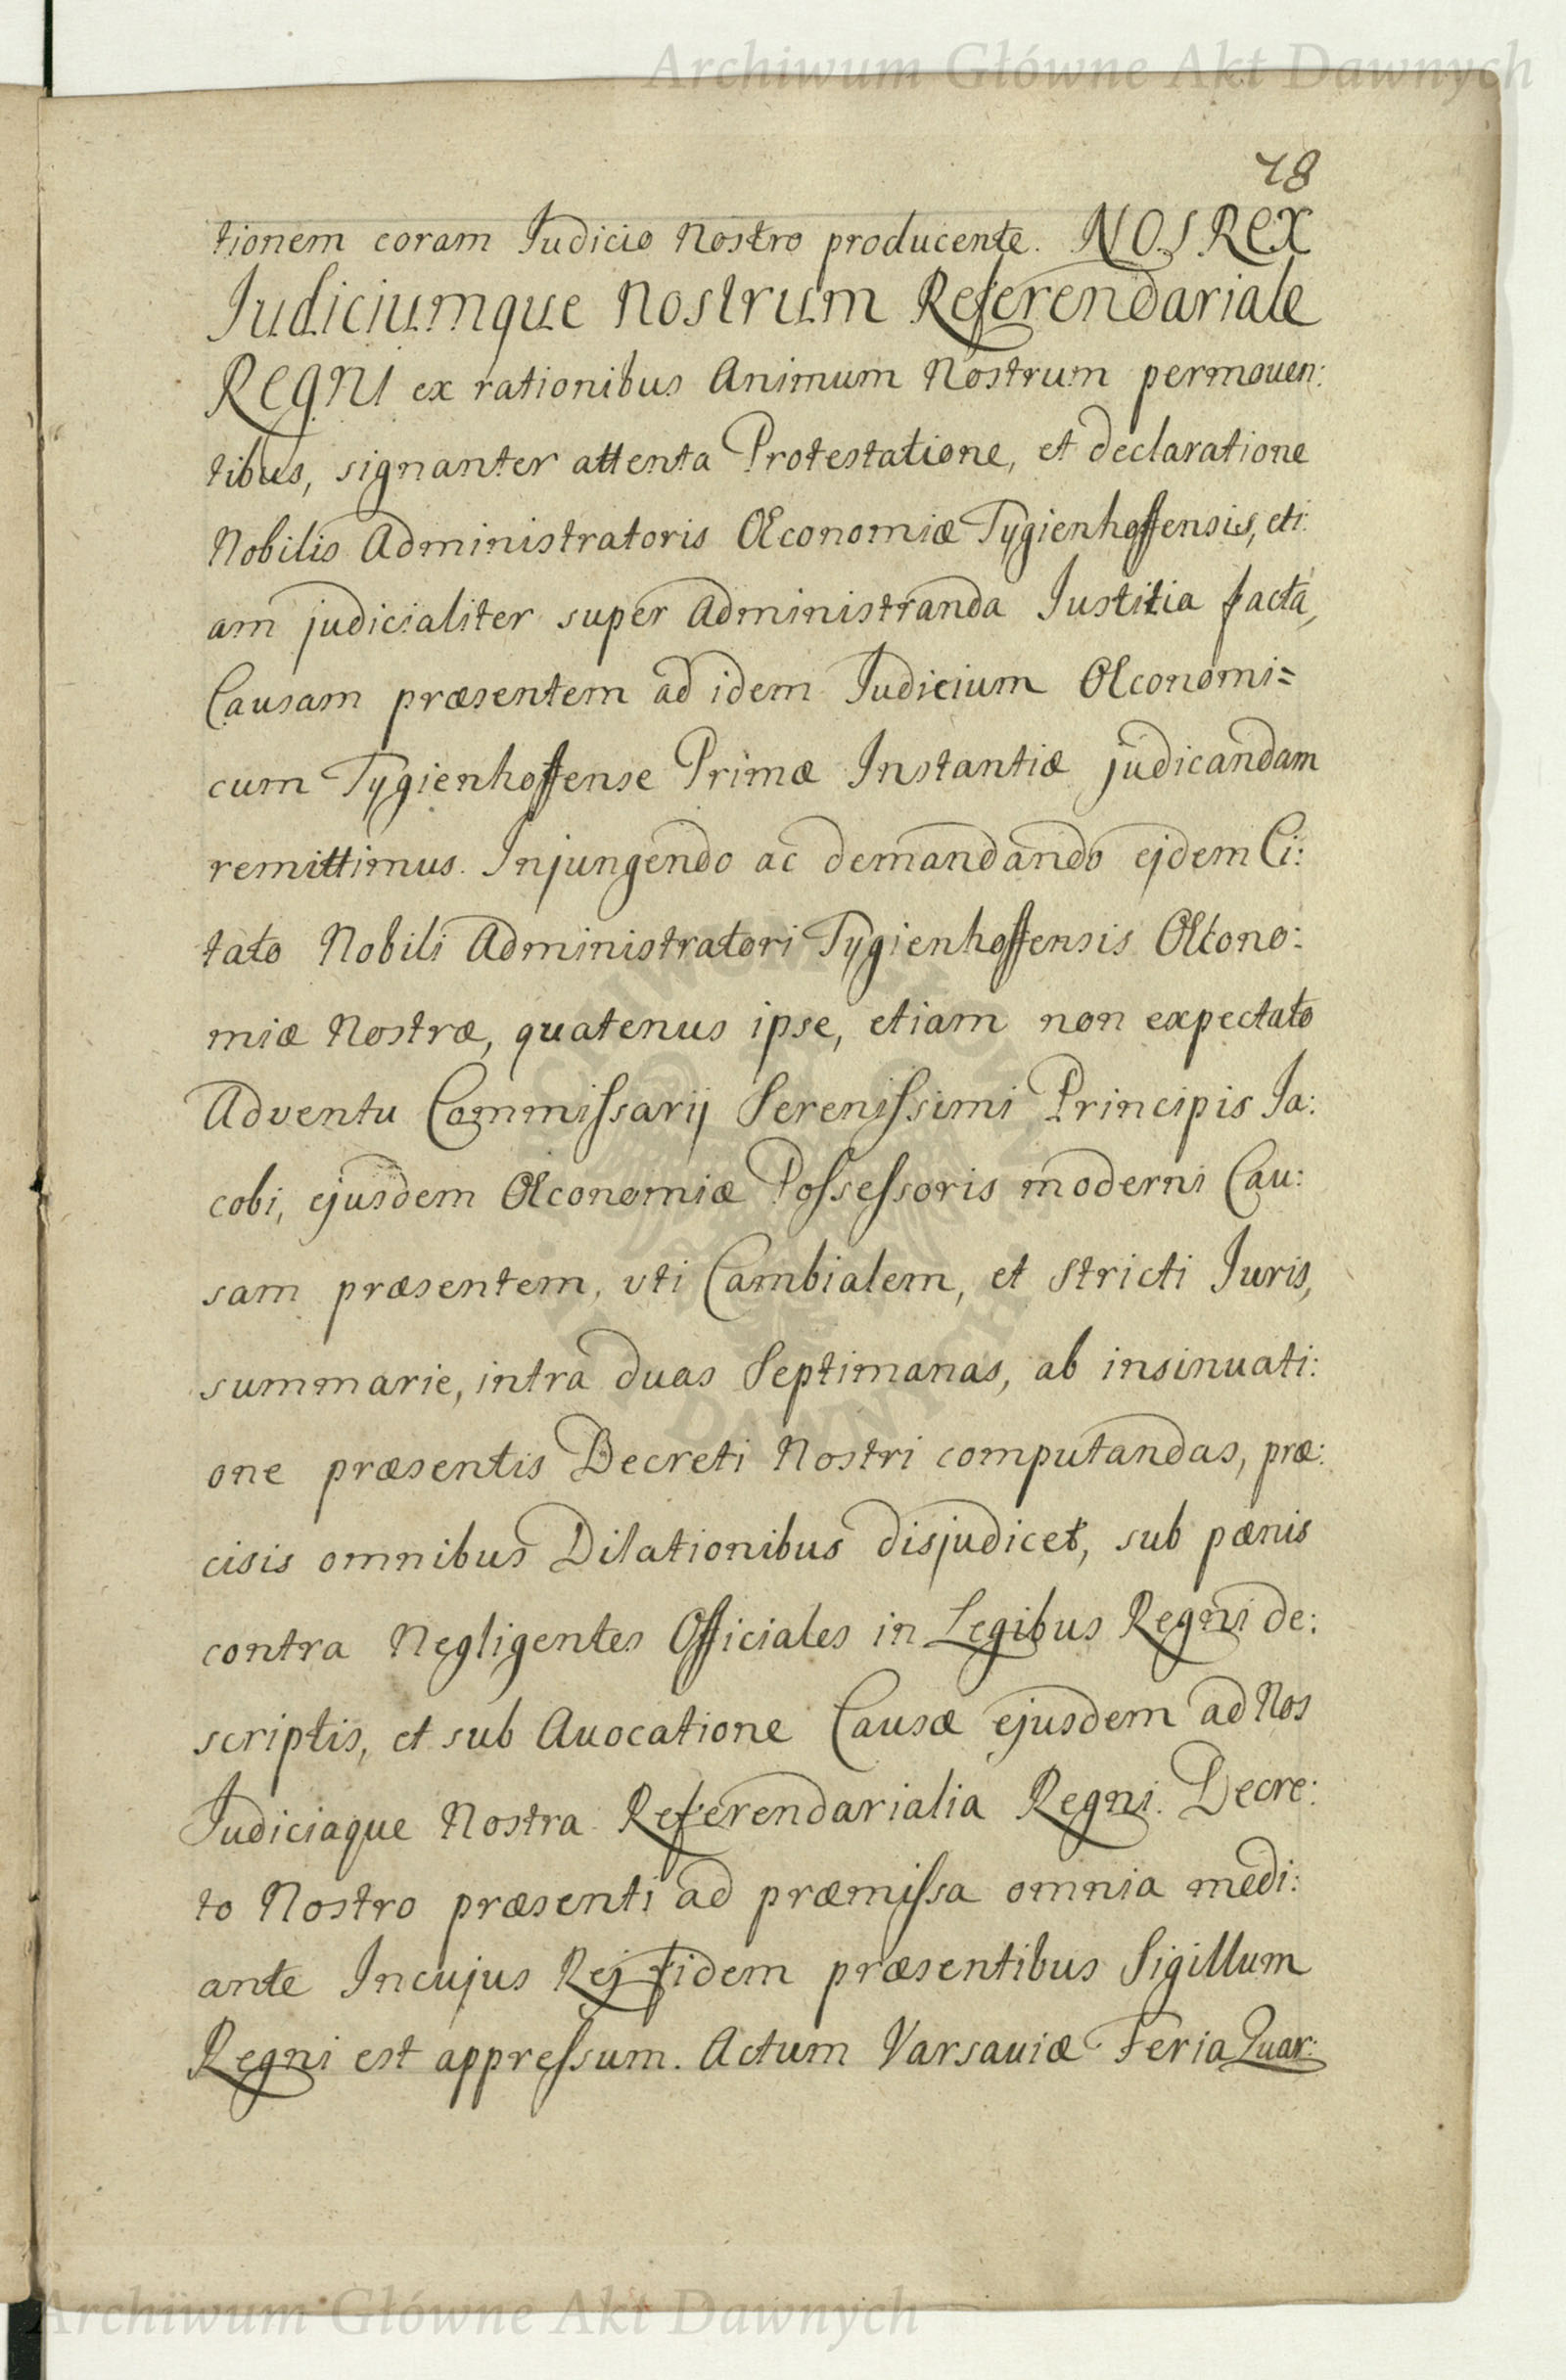 Archiwum Główne Akt Dawnych
78
tionem coram Judicio Nostro producente. NOS REX
Judiciumque Nostrum Referendariale
REGNI ex rationibus Animum Nostrum permouen:
tibus, signanter attenta Protestatione, et declaratione
Nobilis Administratoris Œconomiæ Tygienhoffensis, eti:
am judicialiter super Administranda Justitia facta,
Causam præsentem ad idem Judicium Œconomi=
cum Tygienhoffense Primæ Instantiæ judicandam
remittimus. Injungendo ac demandando ejdem Ci:
tato Nobili Administratori Tygienhoffensis Œcono:
miæ Nostræ, quatenus ipse, etiam non expectato
Adventu Commiſsarij Sereniſsimi Principis Ja:
cobi, ejusdem Œconomiæ Poſseſsoris moderni Cau:
sam præsentem, vti Cambialem, et Stricti Juris,
summarie, intra duas Septimanas, ab insinuati:
one præsentis Decreti Nostri computandas, præ:
cisis omnibus Dilationibus disjudicet, sub pænis
contra Negligentes Officiales in Legibus Regni de:
scriptis, et sub Auocatione Causæ ejusdem ad Nos
Judiciaque Nostra Referendarialia Regni. Decre:
to Nostro præsenti ad præmiſsa omnia medi:
ante Incujus Rej fidem præsentibus Sigillum
Regni est appreſsum. Actum Varsauiæ Feria Quar:
Archiwum Główne Akt Dawnych